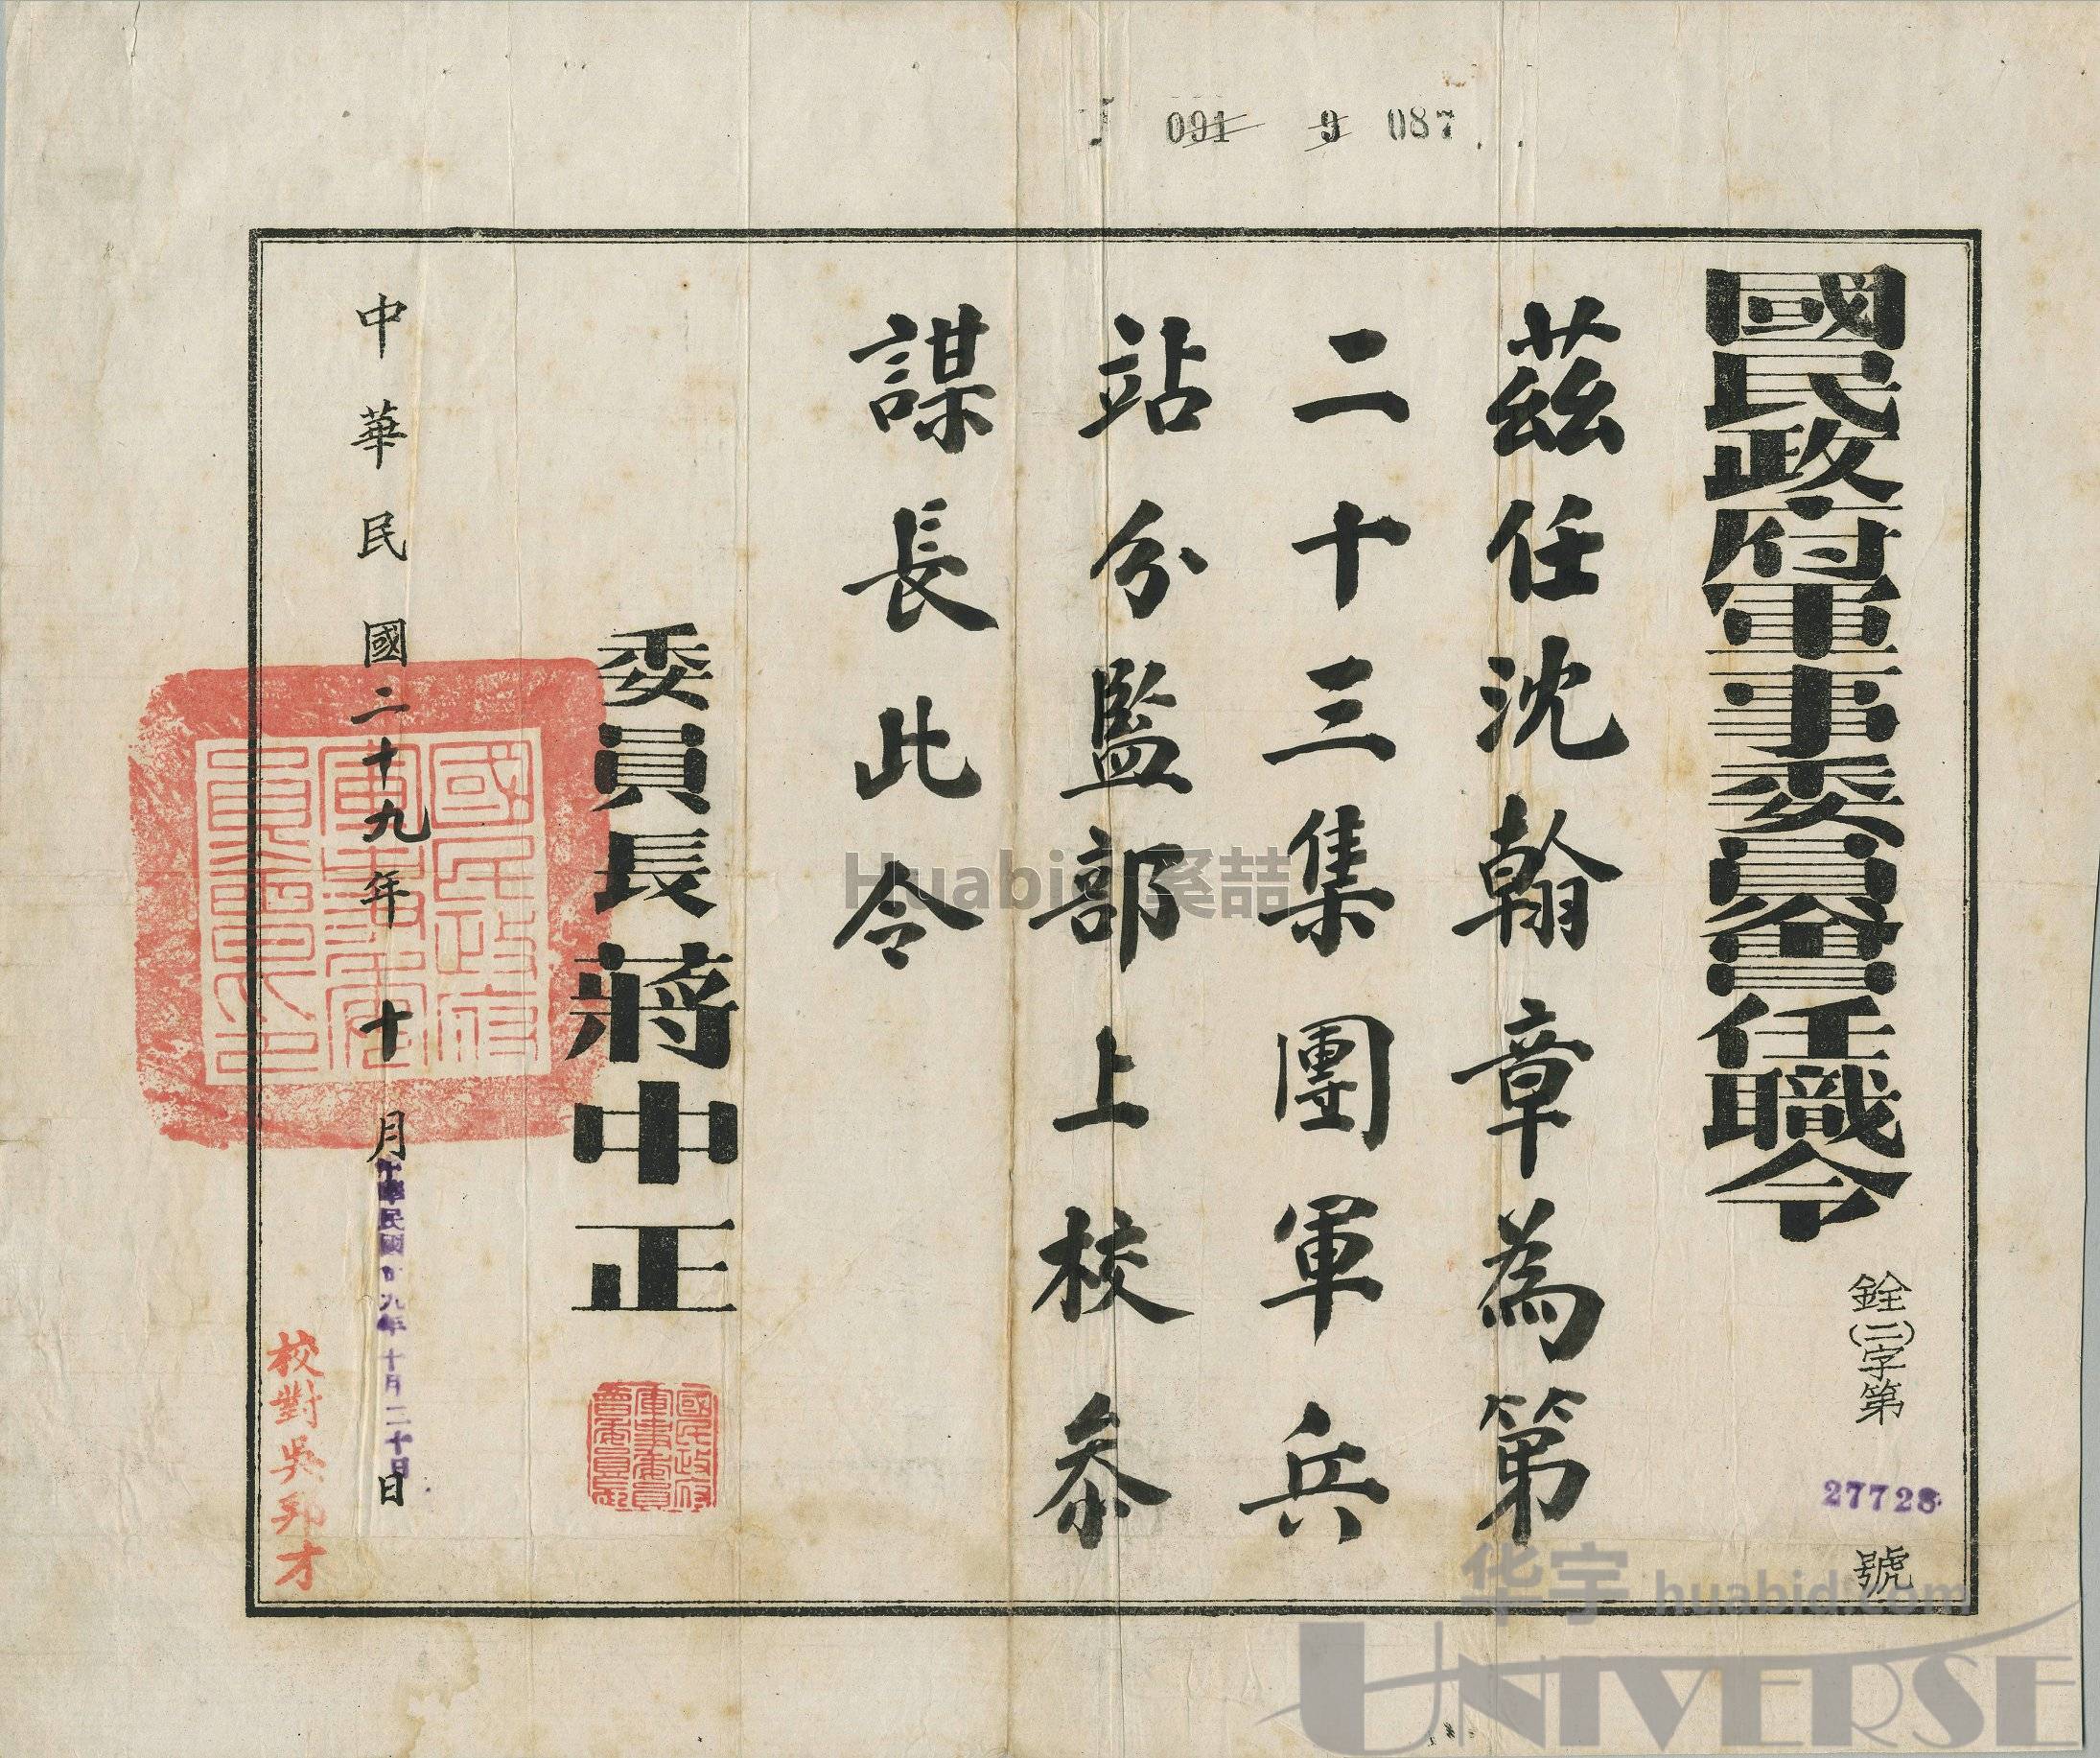 091 9 087
國民政府軍事委員會任職令
銓(二)字第
27728
號
茲任沈翰章為第
二十三集團軍兵
站分監部上校參
謀長此令
委員長蔣中正
國民政府
軍事委員
會委員長
中華民國二十九年十月日
中華民國廿九年十月二十日
國民政府
軍事委員
會印
校對吳邦才
Huabid
華宇 huabid.com
UNIVERSE